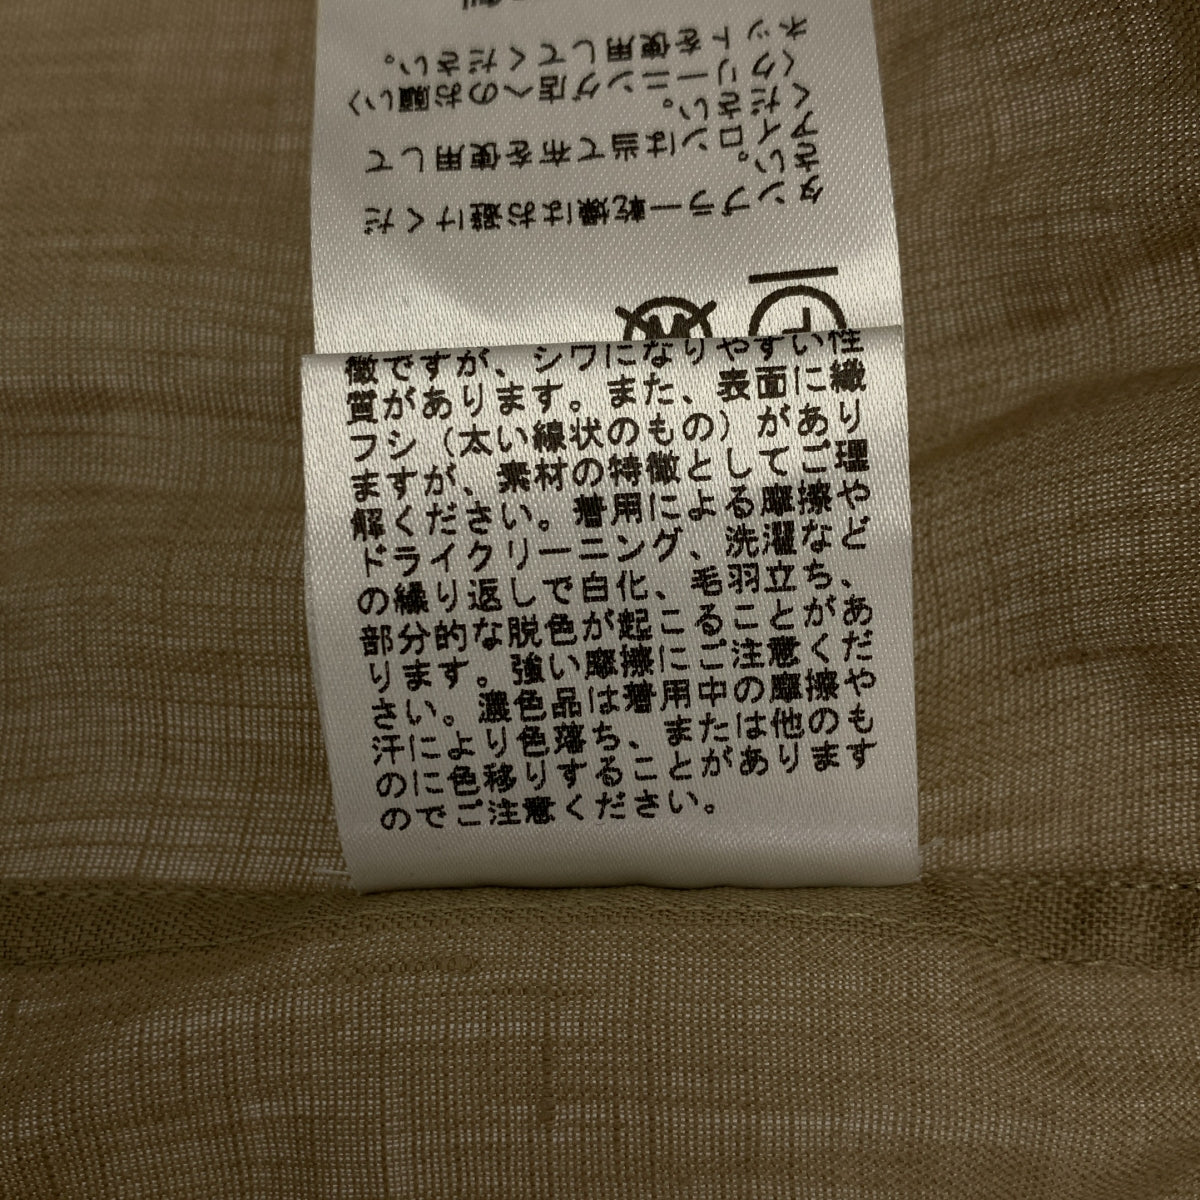 タンブラー乾燥はお避けくだ
さい。
アイロンは当て布を使用して
ください。
〈クリーニング店へのお願い〉
ネットを使用してください。
徴ですが、シワになりやすい性
質があります。また、表面に織
フシ（太い線状のもの）があり
ますが、素材の特徴としてご理
解ください。着用による摩擦や
ドライクリーニング、洗濯など
の繰り返しで白化、毛羽立ち、
部分的な脱色が起こることがあ
ります。強い摩擦にご注意くだ
さい。濃色品は着用中の摩擦や
汗により色落ち、または他のも
のに色移りすることがあります
のでご注意ください。